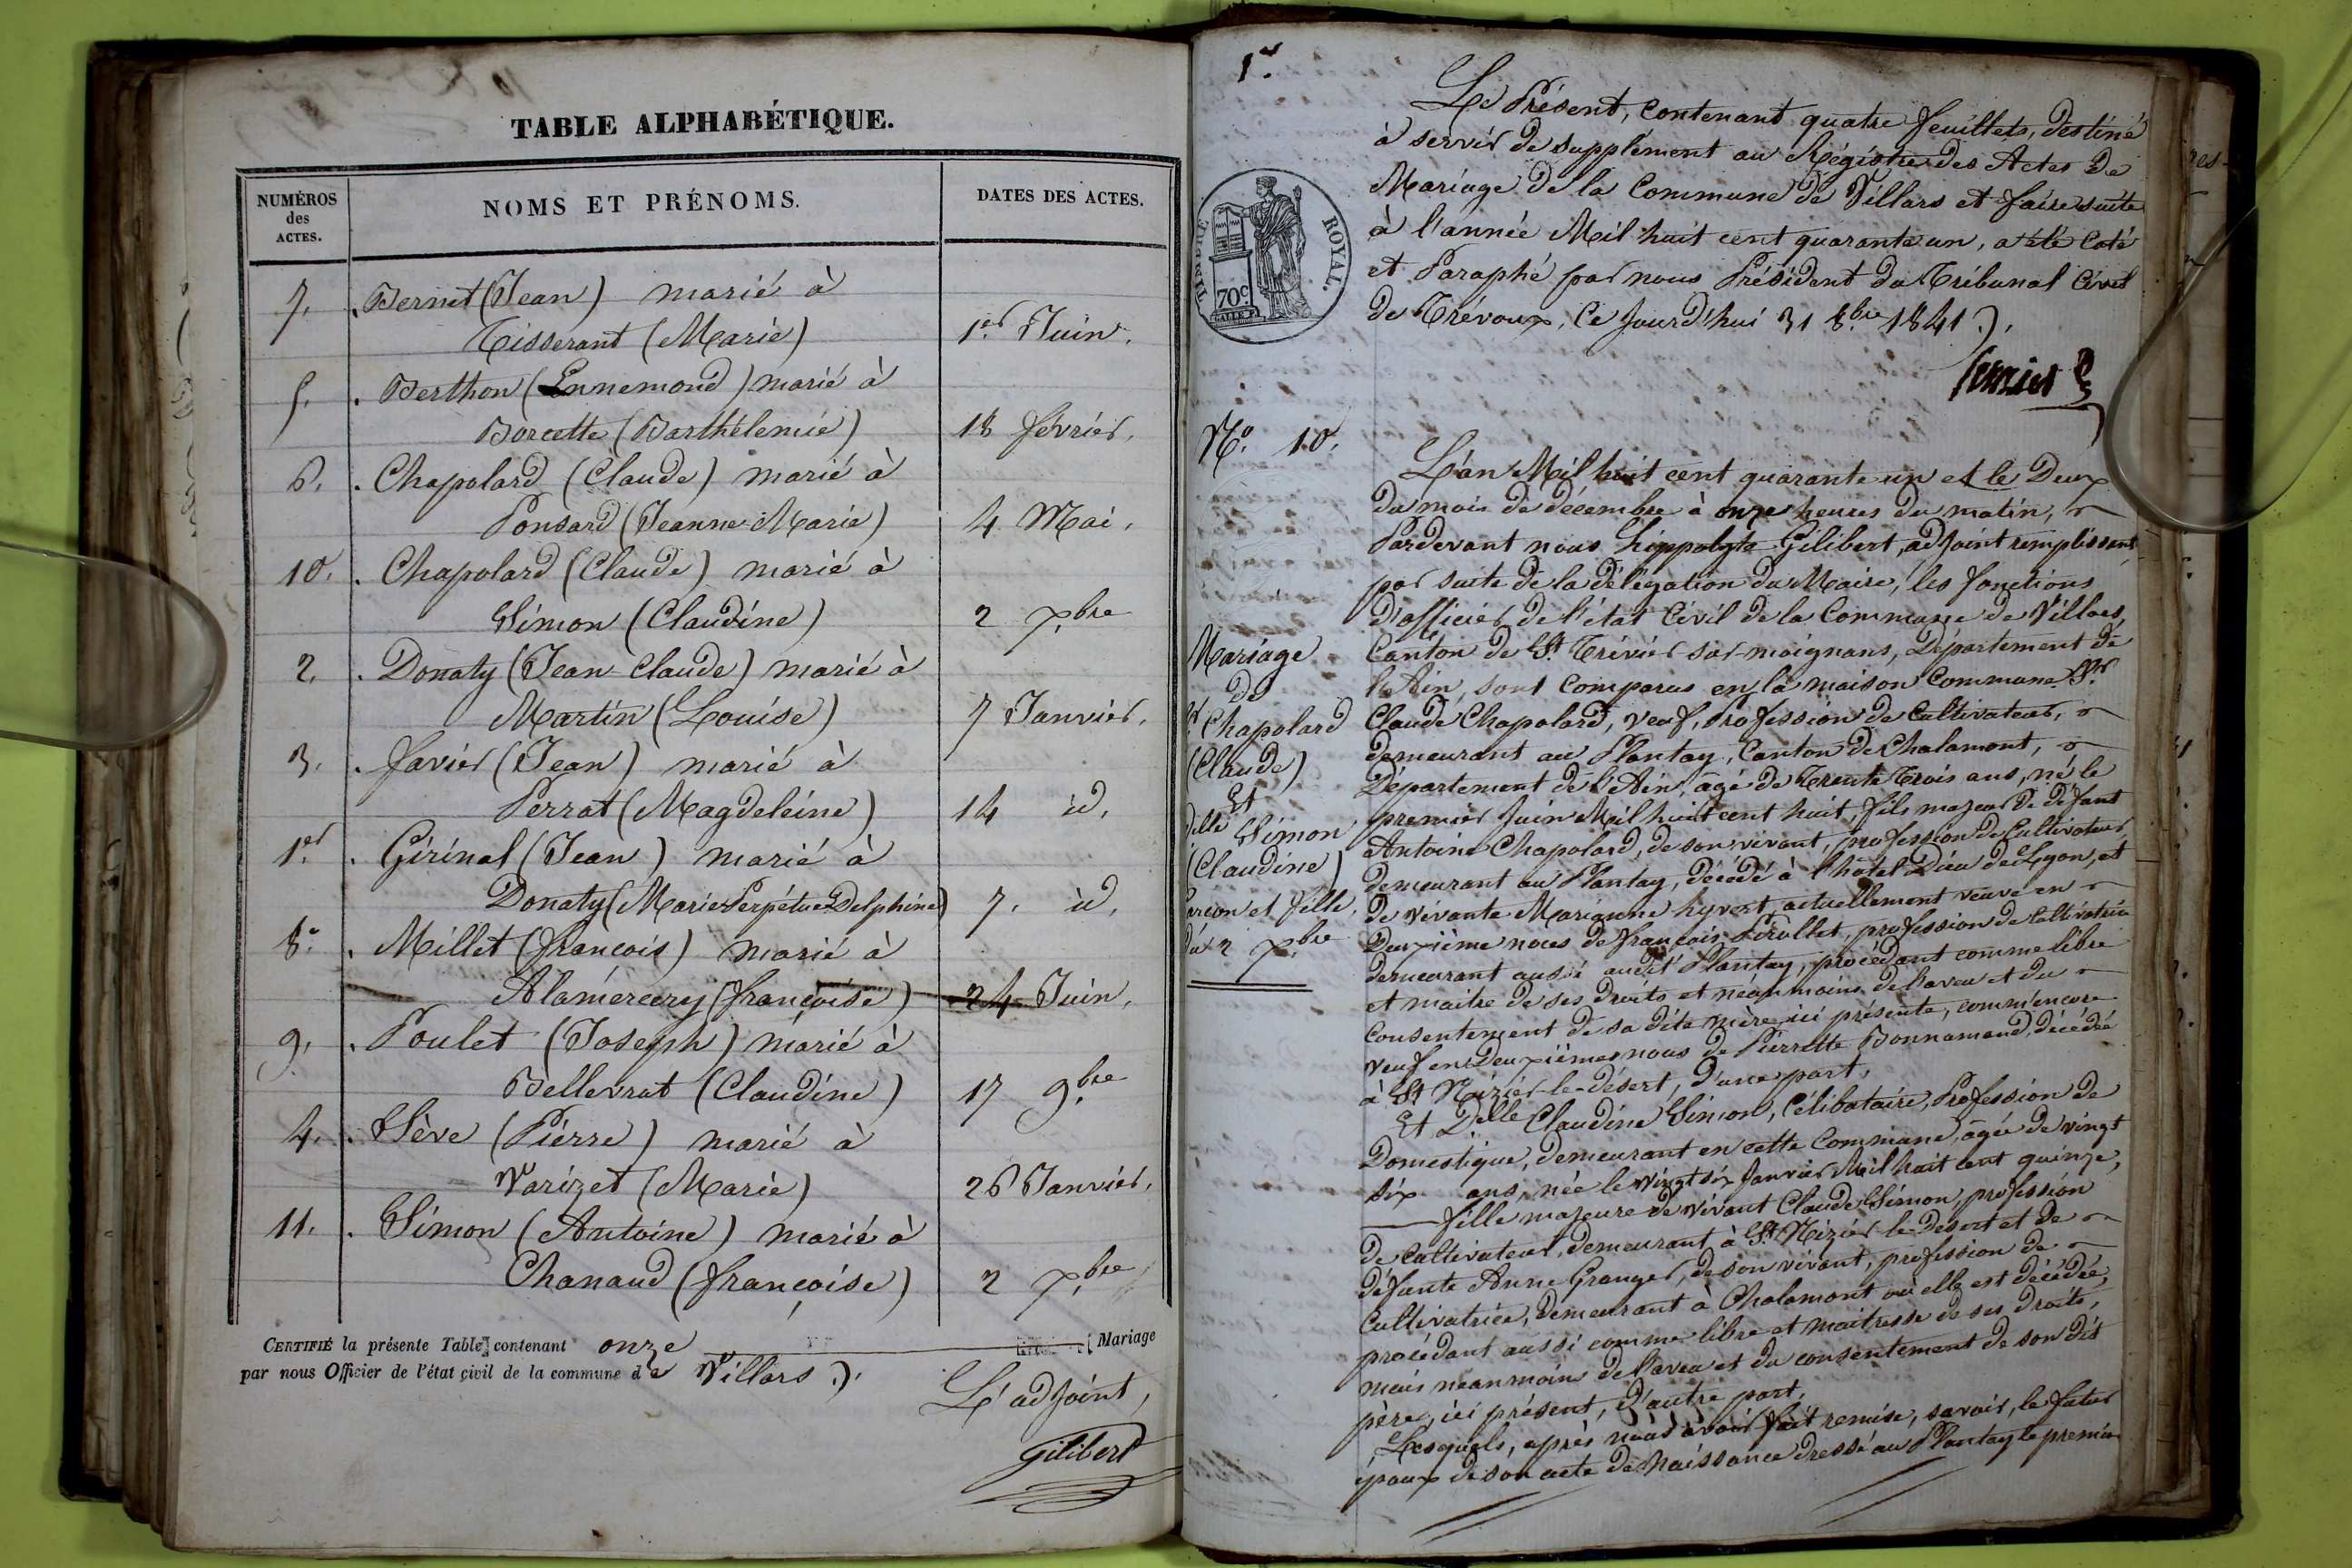 TABLE ALPHABÉTIQUE.
NUMÉROS des ACTES.
NOMS ET PRÉNOMS.
DATES DES ACTES.
7. Bernet (Jean) marié à
Tisserant (Marie) 1er Juin.
5. Berthon (Ennemond) marié à
Borcette (Barthélemie) 18 février.
6. Chapolard (Claude) marié à
Ponsard (Jeanne-Marie) 4 Mai.
10. Chapolard (Claude) marié à
Simon (Claudine) 2 Xbre
2. Donaty (Jean-Claude) marié à
Martin (Louise) 7 Janvier.
3. favier (Jean) marié à
Perrat (Magdeleine) 14 id.
1er. Girinal (Jean) marié à
Donaty (Marie Perpétue Delphine) 7. id.
8e. Millet (françois) marié à
Alamercery (françoise) 24 Juin.
9. Poulet (Joseph) marié à
Bellevrat (Claudine) 17 9bre
4. Sève (Pierre) marié à
Varizet (Marie) 26 Janvier.
11. Simon (Antoine) marié à
Chanaud (françoise) 2 Xbre
CERTIFIÉ la présente Table contenant onze Mariage
par nous Officier de l'état civil de la commune de Villars.
L'adjoint,
Gilibert
1er.
TIMBRE ROYAL.
70c
Le Présent, contenant quatre feuillets, destiné
à servir de supplément au Régistre des Actes de
Mariage de la Commune de Villars et faire suite
à l'année Mil huit cent quarante un, a été Coté
et Paraphé par nous Président du Tribunal Civil
de Trévoux, Ce Jourd'hui 31 8bre 1841.
No. 10.
L'an Mil huit cent quarante un et le Deux
du mois de décembre à onze heures du matin,
Pardevant nous hippolyte Gilibert, adjoint remplissant
par suite de la délégation du Maire, les fonctions
d'officier de l'état Civil de la Commune de Villars,
Mariage
de
Chapolard
(Claude)
Et
delle Simon
(Claudine)
Garçon et fille
du 2 Xbre
Canton de St Trivier sur moignans, Département de
l'Ain, sont Comparus en la maison Commune Sr
Claude Chapolard, veuf, Profession de Cultivateur,
demeurant au Plantay, Canton de Chalamont,
Département de l'Ain, âgé de Trente Trois ans, né le
premier Juin Mil huit cent huit, fils majeur de défunt
Antoine Chapolard, de son vivant, profession de Cultivateur
demeurant au Plantay, décédé à l'hôtel Dieu de Lyon, et
de vivante Marianne hyvert actuellement veuve en
Deuxième noces de françois Pérollet, profession de Cultivatrice
demeurant aussi audit Plantay, procédant comme libre
et maitre de ses droits et néanmoins de l'aveu et du
consentement de sa dite mère ici présente, comm'encore
veuf en deuxièmes nous de Pierrette Bonnamand, décédée
à St Nizier-le-désert, d'une part.
Et Delle Claudine Simon, Célibataire, Profession de
Domestique, demeurant en cette Commune, âgée de vingt
six ans, née le vingt six Janvier Mil huit cent quinze,
fille majeure de vivant Claude Simon, profession
de Cultivateur, demeurant à St Nizier-le-Désert et de
défunte Anne Granger, de son vivant, profession de
Cultivatrice, demeurant à Chalamont où elle est décédée,
procédant aussi comme libre et maitresse de ses droits,
mais néanmoins de l'aveu et du consentement de son dit
père, ici présent, d'autre part.
Lesquels, après nous avoir fait remise, savoir, le futur
époux de son acte de Naissance dressé au Plantay le premier